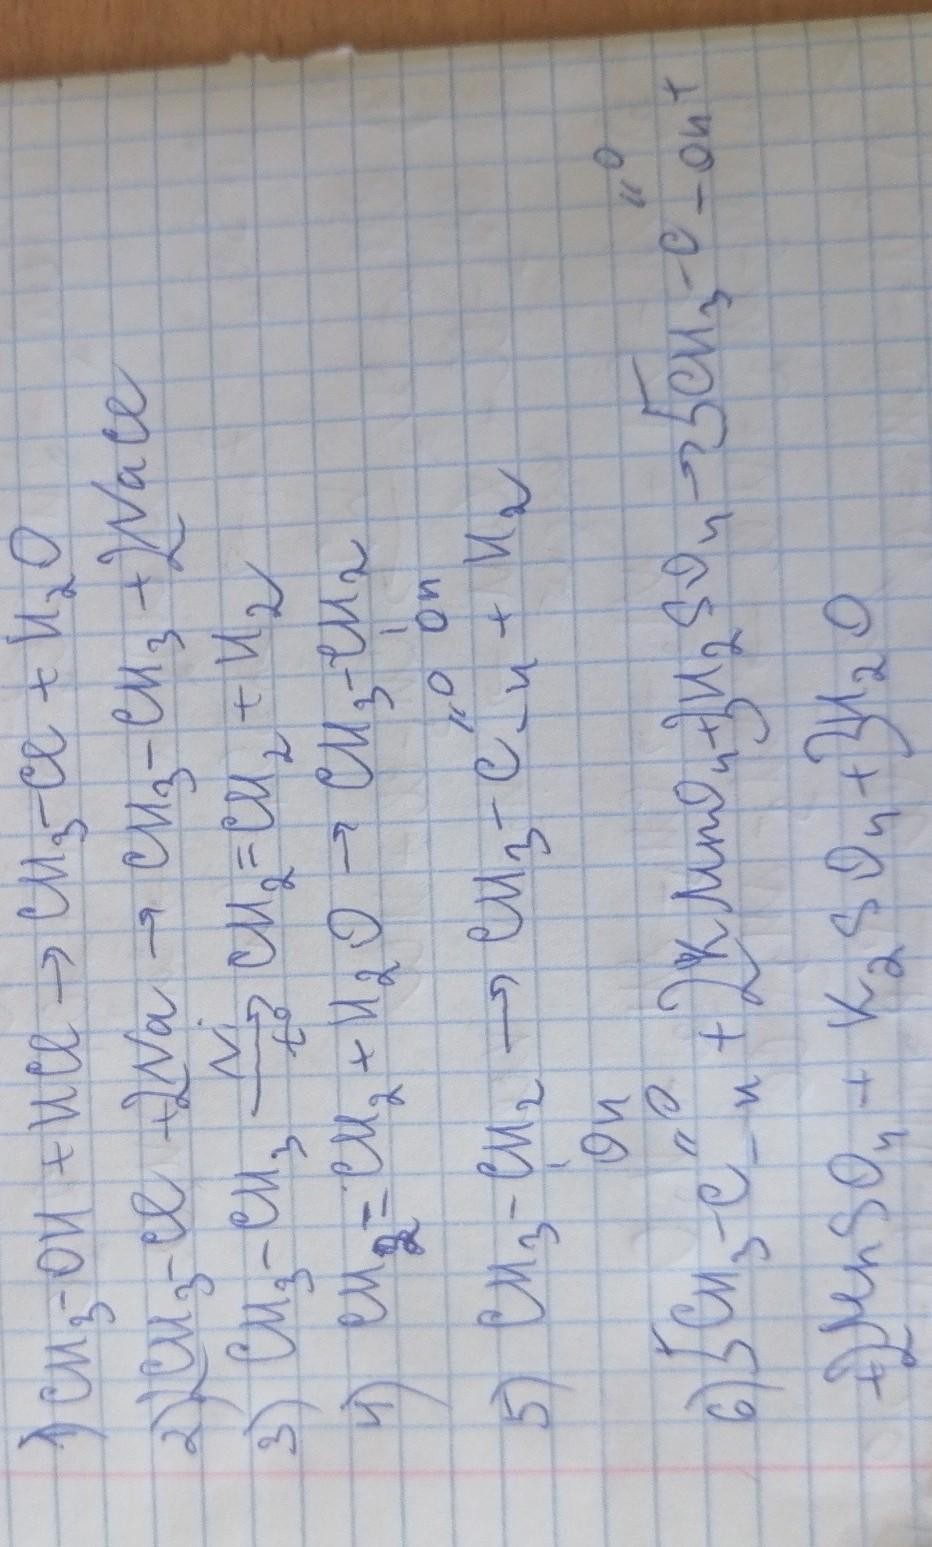 1) CH₃-OH + HCl → CH₃-Cl + H₂O
2) 2CH₃-Cl + 2Na → CH₃-CH₃ + 2NaCl
3) CH₃-CH₃ Ni → t° CH₂=CH₂ + H₂
4) CH₂=CH₂ + H₂O → CH₃-CH₂
OH
O
5) CH₃-CH₂ → CH₃-C-H + H₂
OH
O O
6) 5CH₃-C-H + 2KMnO₄ + 3H₂SO₄ → 5CH₃-C-OH +
+ 2MnSO₄ + K₂SO₄ + 3H₂O